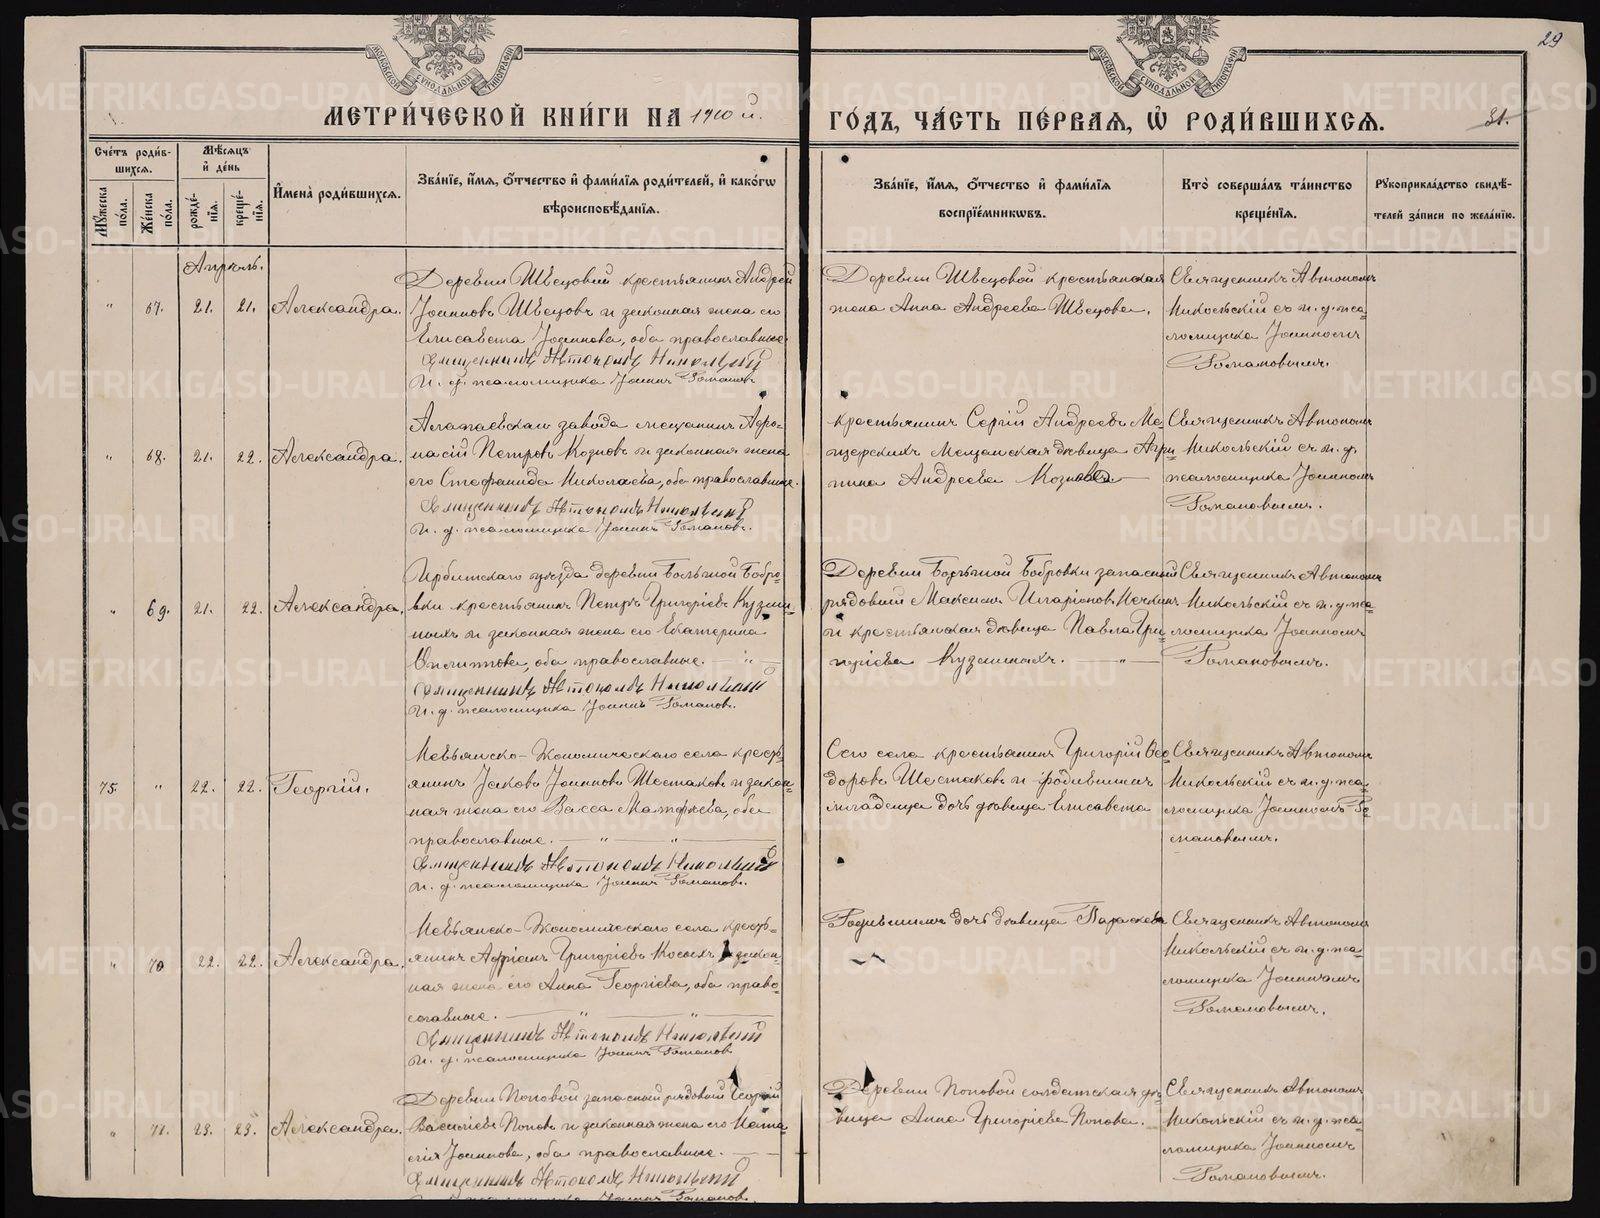 29
МЕТРИ́ЧЕСКОЙ КНИ́ГИ НА 1910 й.
ГО́ДЪ, ЧА́СТЬ ПЕ́РВАЯ, Ѡ РОДИ́ВШИХСЯ.
31.
Сче́тъ роди́в-
шихся.
Мѣсяцъ
и де́нь
Мꙋжеска по́ла.
Же́нска по́ла.
рожде́-
нїя.
креще́-
нїя.
И҆мена̀ роди́вшихся.
Зва́нїе, и҆́мя, ѻ҆́тчество и҆ фами́лїя роди́телей, и҆ како́гѡ
вѣроисповѣ́данїя.
Зва́нїе, и҆́мя, ѻ҆́тчество и҆ фами́лїя
воспрїе́мникѡвъ.
Кто̀ соверша́лъ та́инство
креще́нїя.
Рꙋкоприкла́дство свидѣ́-
телей за́писи по жела́нїю.
Апрѣль.
" 67. 21. 21. Александра.
Деревни Швецовой крестьянинъ Андрей
Іоанновъ Швецовъ и законная жена его
Елисавета Іоаннова, оба православные.
Священникъ Автономъ Никольскій
И. д. псаломщика Іоаннъ Романовъ.
Деревни Швецовой крестьянская
жена Анна Андреева Швецова.
Священникъ Автономъ
Никольскій съ и. д. пса-
ломщика Іоанномъ
Романовымъ.
" 68. 21. 22. Александра.
Алапаевскаго завода мещанинъ Афо-
насій Петровъ Козловъ и законная жена
его Стефанида Николаева, оба православные.
Священникъ Автономъ Никольскій
И. д. псаломщика Іоаннъ Романовъ.
крестьянинъ Сергій Андреевъ Ме-
щерскихъ Мещанская дѣвица Агри-
пина Андреева Козлова
Священникъ Автономъ
Никольскій съ и. д.
псаломщика Іоанномъ
Романовымъ.
" 69. 21. 22. Александра.
Ирбитскаго уѣзда деревни Большой Бобро-
вки крестьянинъ Петръ Григоріевъ Кузми-
ныхъ и законная жена его Екатерина
Филиппова, оба православные. — " —
Священникъ Автономъ Никольскій
И. д. псаломщика Іоаннъ Романовъ.
Деревни Большой Бобровки запасный
рядовый Максимъ Иларіоновъ
и крестьянская дѣвица Павла Гри-
горіева Кузминыхъ. — " —
Священникъ Автономъ
Никольскій съ и. д. пса-
ломщика Іоанномъ
Романовымъ.
75. " 22. 22. Георгій.
Невьянско-Экономическаго села кресть-
янинъ Іаковъ Іоанновъ Шестаковъ и закон-
ная жена его Васса Матфеева, оба
православные. — " — " —
Священникъ Автономъ Никольскій
И. д. псаломщика Іоаннъ Романовъ.
Сего села крестьянинъ Григорій Ѳео-
доровъ Шестаковъ и родившихъ
младенца дочь дѣвица Елисавета
Священникъ Автономъ
Никольскій съ и. д. пса-
ломщика Іоанномъ Ро-
мановымъ.
" 70 22. 22. Александра.
Невьянско-Экономическаго села кресть-
янинъ Адріанъ Григоріевъ Косыхъ и закон-
ная жена его Анна Георгіева, оба право-
славные. — " — " —
Священникъ Автономъ Никольскій
И. д. псаломщика Іоаннъ Романовъ
Родившихъ дочь дѣвица Параскева
Священникъ Автономъ
Никольскій съ и. д. пса-
ломщика Іоанномъ
Романовымъ.
" 71. 23. 23. Александра.
Деревни Поповой запасный рядовый Георгій
Василіевъ Поповъ и законная жена его Ната-
лія Іоаннова, оба православные. —
Священникъ Автономъ Никольскій
И. д. псаломщика Іоаннъ Романовъ.
Деревни Поповой солдатская дѣ-
вица Анна Григоріева Попова.
Священникъ Автономъ
Никольскій съ и. д. пса-
ломщика Іоанномъ
Романовымъ.